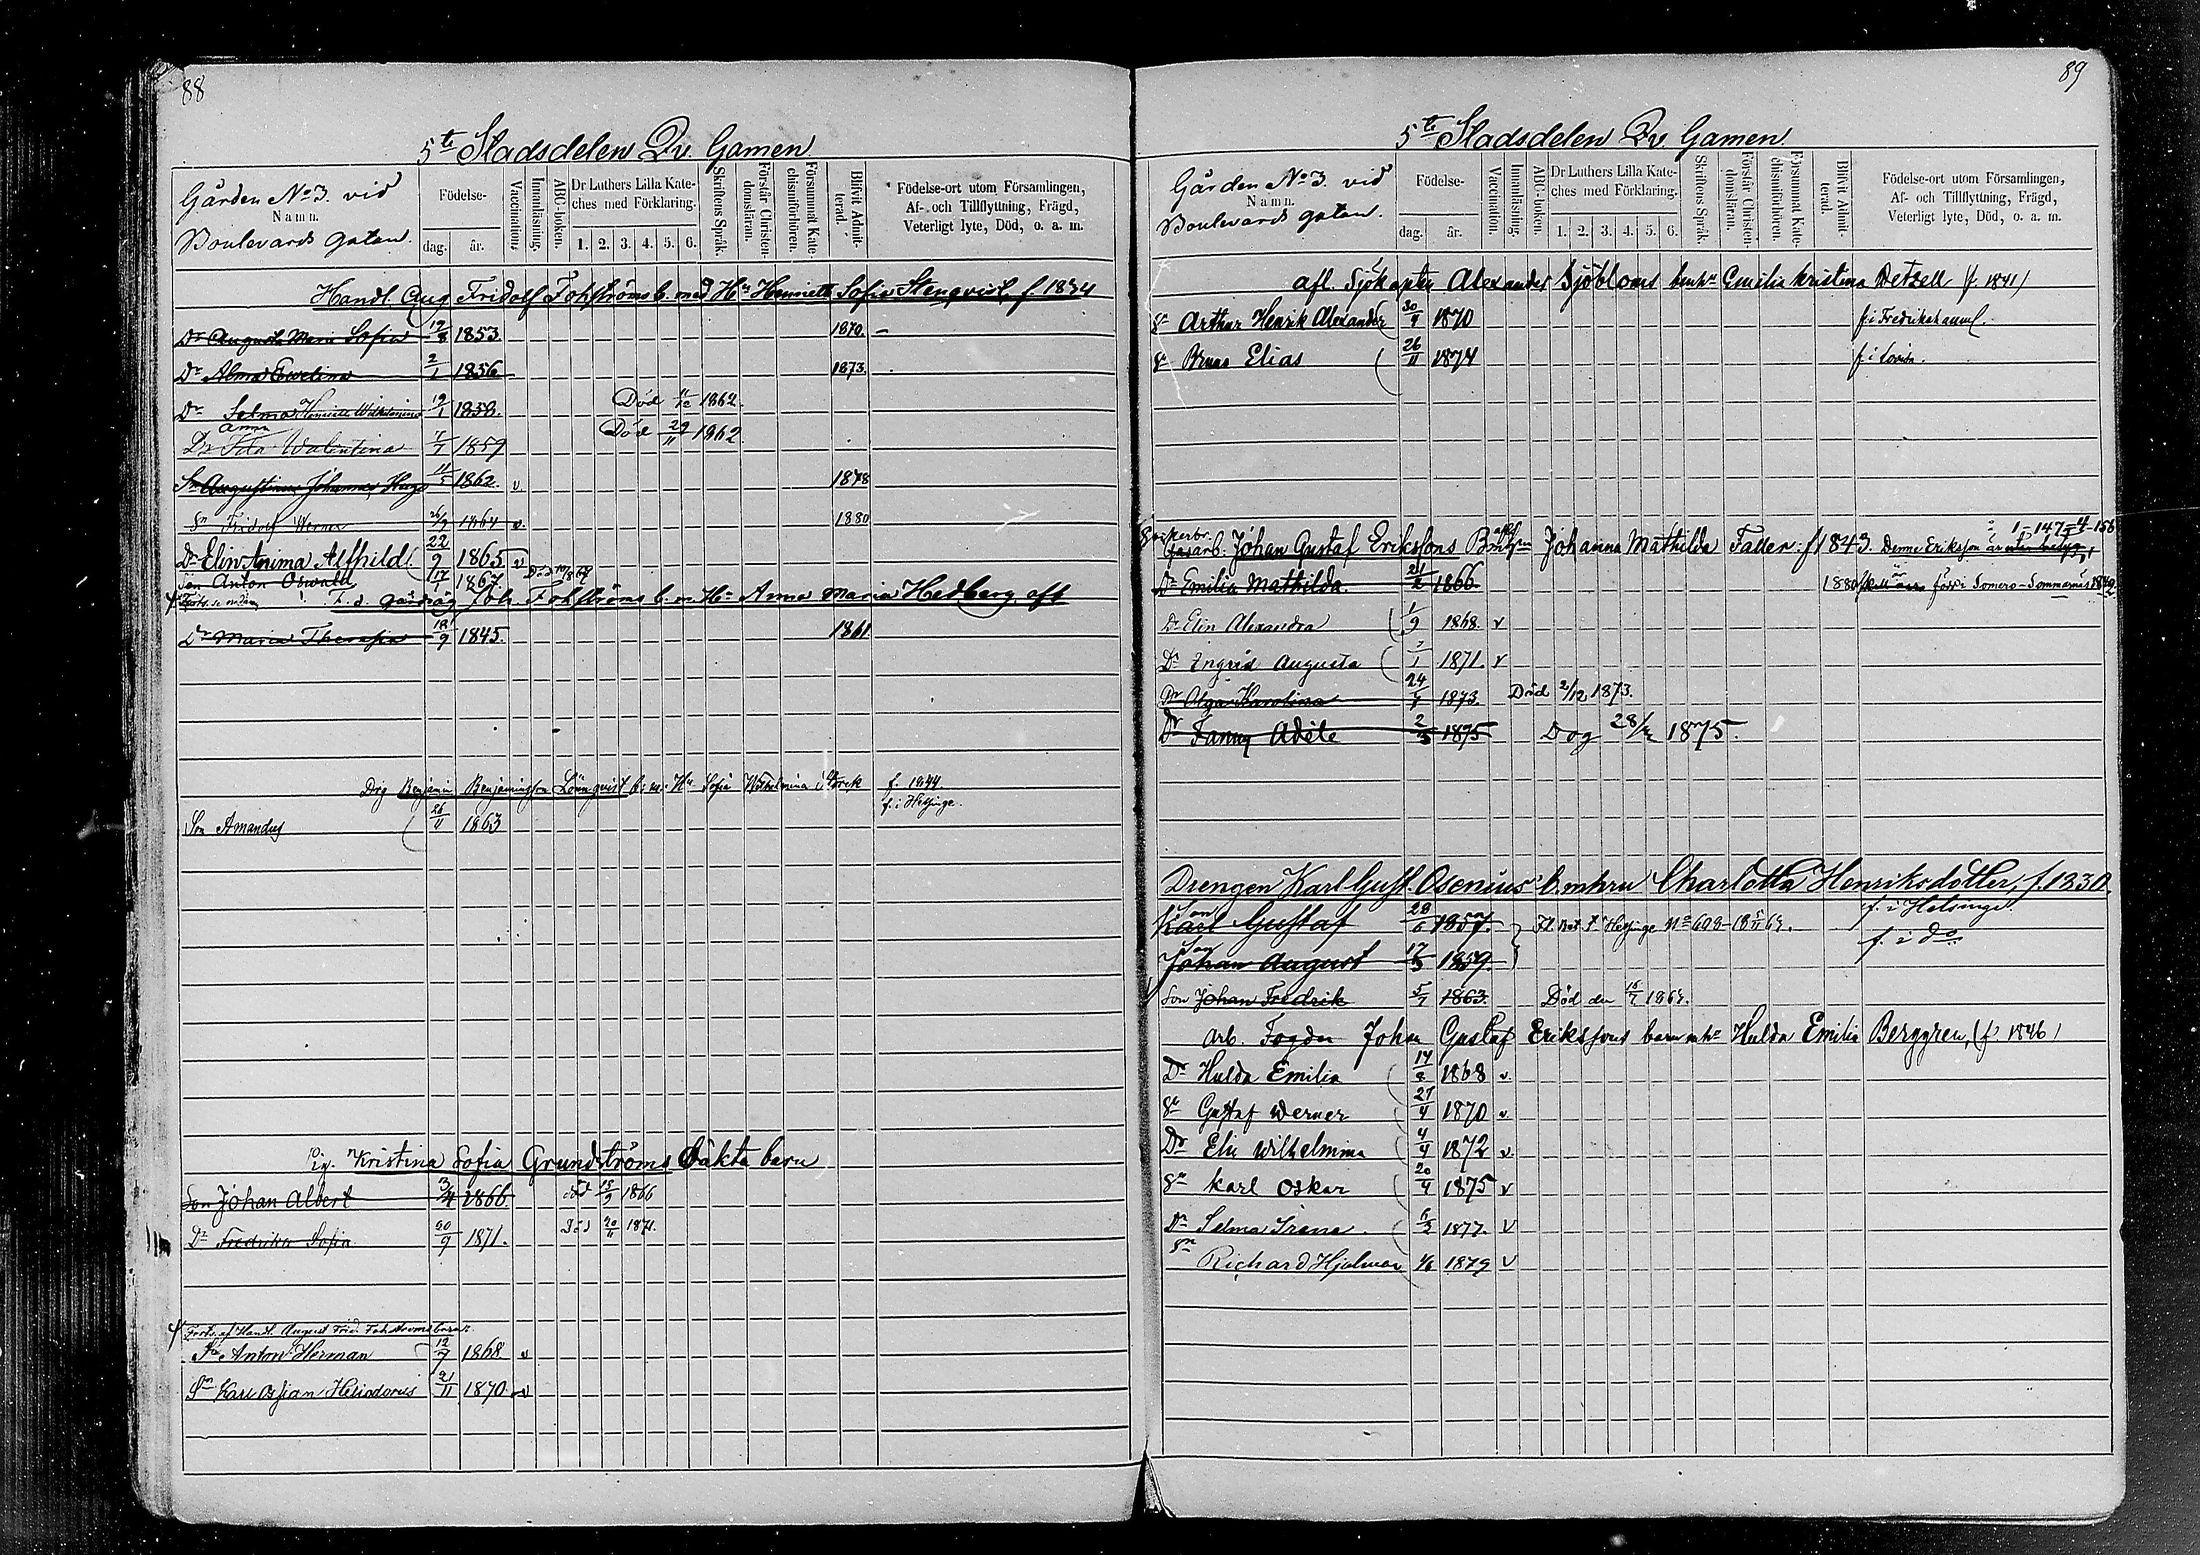 88
5te Stadsdelen Qv. Gamen
Gården No 3. vid
Namn.
Boulevards gatan.
Födelse-
dag.
år.
Vaccination.
Innanläsning.
ABC-boken.
Dr Luthers Lilla Kate-
ches med Förklaring.
1. 2. 3. 4. 5. 6.
Skriftens Språk.
Förstår Christen-
domsläran.
Försummat Kate-
chismiförhören.
Blifvit Admit-
terad.
Födelse-ort utom Församlingen,
Af- och Tillflyttning, Frägd,
Veterligt lyte, Död, o. a. m.
Handl. Aug Fridolf Fohströms b. med Hu Henriette Sofia Stenqvist, f. 1834
Dr Augusta Maria Sofia 19/8 1853. 1870. –
Dr Alma Evelina 2/1 1856 1873.
Dr Selma Henriette Wilhelmina 19/1 1858. Död 11/12 1862.
Anna
Dr Ida Walentina 7/7 1859 Död 29/11 1862.
Sn Augustinus Johannes Hugo 11/5 1862. v. 1878
Sn Fridolf Werner 26/2 1864 v. 1880
Dr Elin Anima Alfhild. 22/9 1865 v
Son Anton Oswald 17/7 1867. Död 1868
Forts. se nedan T. d. Joh. Fohströms b. m. Hu Anna Maria Hedberg, aft
Dr Maria Theresia 18/9 1845. 1861
Drg Benjamin Benjaminsson Lönnqvist b. m. Hu Sofia Wilhelmina f. 1844.
f. i Helsinge.
Son Amandus 26/11 1863
Pig. Kristina Sofia Grundströms oäkta barn
Son Johan Albert 3/4 1866. död 15/9 1866
Dr Fredrika Sofia 1871. Död 20/11 1871.
Forts. af Handl. August Frid. Fohströms barn:
Sn Anton Herman 12/7 1868 v
Sn Karl Ossian Heliodorus 21/11 1870 v
89
5te Stadsdelen Qv. Gamen.
Gården No 3. vid
Namn.
Boulevards gatan.
Födelse-
dag.
år.
Vaccination.
Innanläsning.
ABC-boken.
Dr Luthers Lilla Kate-
ches med Förklaring.
1. 2. 3. 4. 5. 6.
Skriftens Språk.
Förstår Christen-
domsläran.
Försummat Kate-
chismiförhören.
Blifvit Admit-
terad.
Födelse-ort utom Församlingen,
Af- och Tillflyttning, Frägd,
Veterligt lyte, Död, o. a. m.
afl. Sjökapten Alexander Sjöbloms b. m. hu Emilia Kristina Detzell (f. 1841)
Sn Arthur Henrik Alexander 30/9 1870 f. i Fredrikshamn.
Sn Bruno Elias 26/11 1874 f. i Lovisa.
1–147=4–156
arb. Johan Gustaf Erikssons Johanna Mathilda Faller f. 1843. Denne Eriksson
Dr Emilia Mathilda. 21/2 1866 1880 född i Somero–Sommarnäs 1842
Dr Elin Alexandra 1/9 1868. v
Dr Ingrid Augusta 7/1 1871. v
Dr Olga Karolina 24/7 1873. Död 2/12 1873.
Dr Fanny Adéle 2/3 1875 Dog 28/12 1875.
Drengen Karl Gust. Osenius' b. m hru Charlotta Henriksdotter, f. 1830.
Son
Karl Gustaf 28/6 1857. Fl. bet. t. Helsinge No 609–18 5/11 64. f. i Helsinge.
Son
Johan August 17/3 1859. f. i do
Son Johan Fredrik 5/7 1863. Död den 15/7 1864.
Arb. Fogden Johan Gustaf Erikssons barn m hu Hulda Emilia Berggren, (f. 1846)
Dr Hulda Emilia 14/2 1868 v.
Sn Gustaf Werner 27/4 1870 v.
Dr Elin Wilhelmina 4/4 1872 v.
Sn Karl Oskar 20/4 1875 v
Dr Selma Irene. 6/3 1877. v
Sn Richard Hjalmar 4/6 1879 v